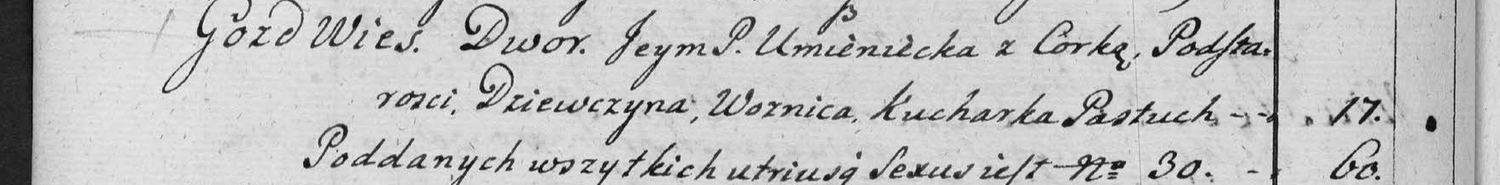 Gozd Wies. Dwor. Jeym P. Umieniecka z Corką, Podsta. 17.
rosci, Dziewczyna, Woznica, Kucharka Pastuch - -
Poddanych wszytkich utriusq Sexus iest No 30. - - 60.